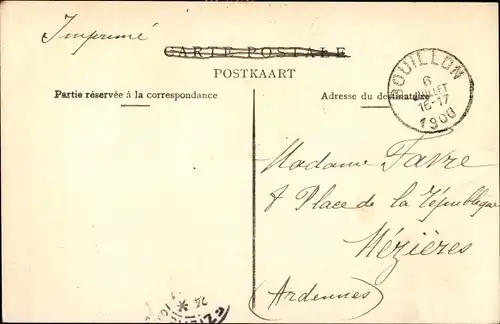 Imprimé
CARTE POSTALE
POSTKAART
Partie réservée à la correspondance
Adresse du destinataire
BOUILLON
6
JUILLET
16-17
1908
Madame Favre
8 Place de la République
Mézières
(Ardennes)